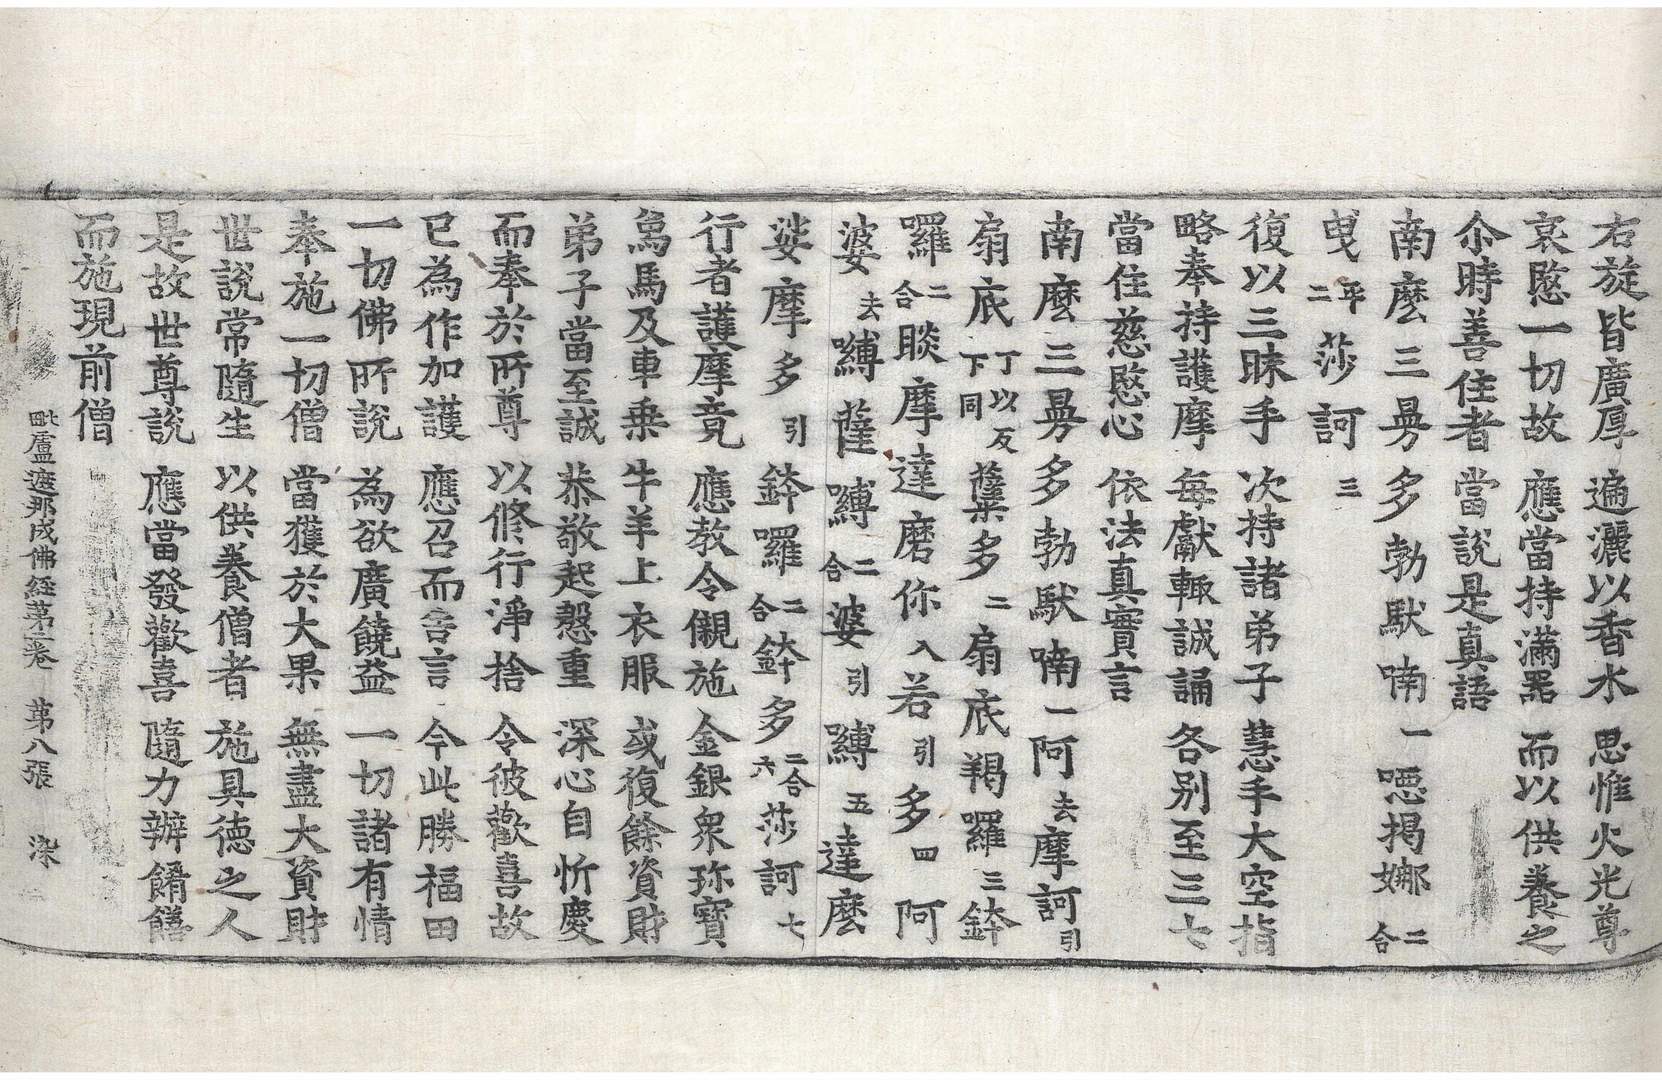 右旋皆廣厚 遍灑以香水 思惟火光尊
哀愍一切故 應當持滿器 而以供養之
尒時善住者 當說是真語
南麽三曼多勃馱喃一噁揭娜二合
曳平二莎訶三
復以三昧手 次持諸弟子 慧手大空指
略奉持護摩 每獻輒誠誦 各別至三七
當住慈愍心 依法真實言
南麽三曼多勃馱喃一阿去摩訶引
扇底丁以反下同蘖多二扇底羯羅三鉢
囉二合睒摩達磨你入若引多四阿
婆去嚩薩嚩二合婆引嚩五達麽
娑摩多引鉢囉二合鉢多二合六莎訶七
行者護摩竟 應教令儭施 金銀衆珎寶
烏馬及車乗 牛羊上衣服 或復餘資財
弟子當至誠 恭敬起慇重 深心自忻慶
而奉於所尊 以修行淨捨 令彼歡喜故
已為作加護 應召而告言 今此勝福田
一切佛所說 為欲廣饒益 一切諸有情
奉施一切僧 當獲於大果 無盡大資財
世說常隨生 以供養僧者 施具德之人
是故世尊說 應當發歡喜 隨力辦餚饍
而施現前僧
毗盧遮那成佛經第二卷 第八張 染